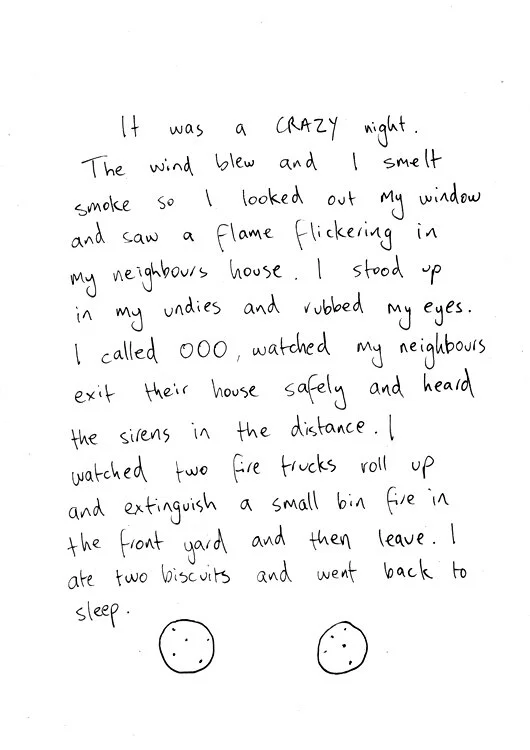 It was a CRAZY night.
The wind blew and I smelt
smoke so I looked out my window
and saw a flame flickering in
my neighbours house. I stood up
in my undies and rubbed my eyes.
I called 000, watched my neighbours
exit their house safely and heard
the sirens in the distance. I
watched two fire trucks roll up
and extinguish a small bin fire in
the front yard and then leave. I
ate two biscuits and went back to
sleep.